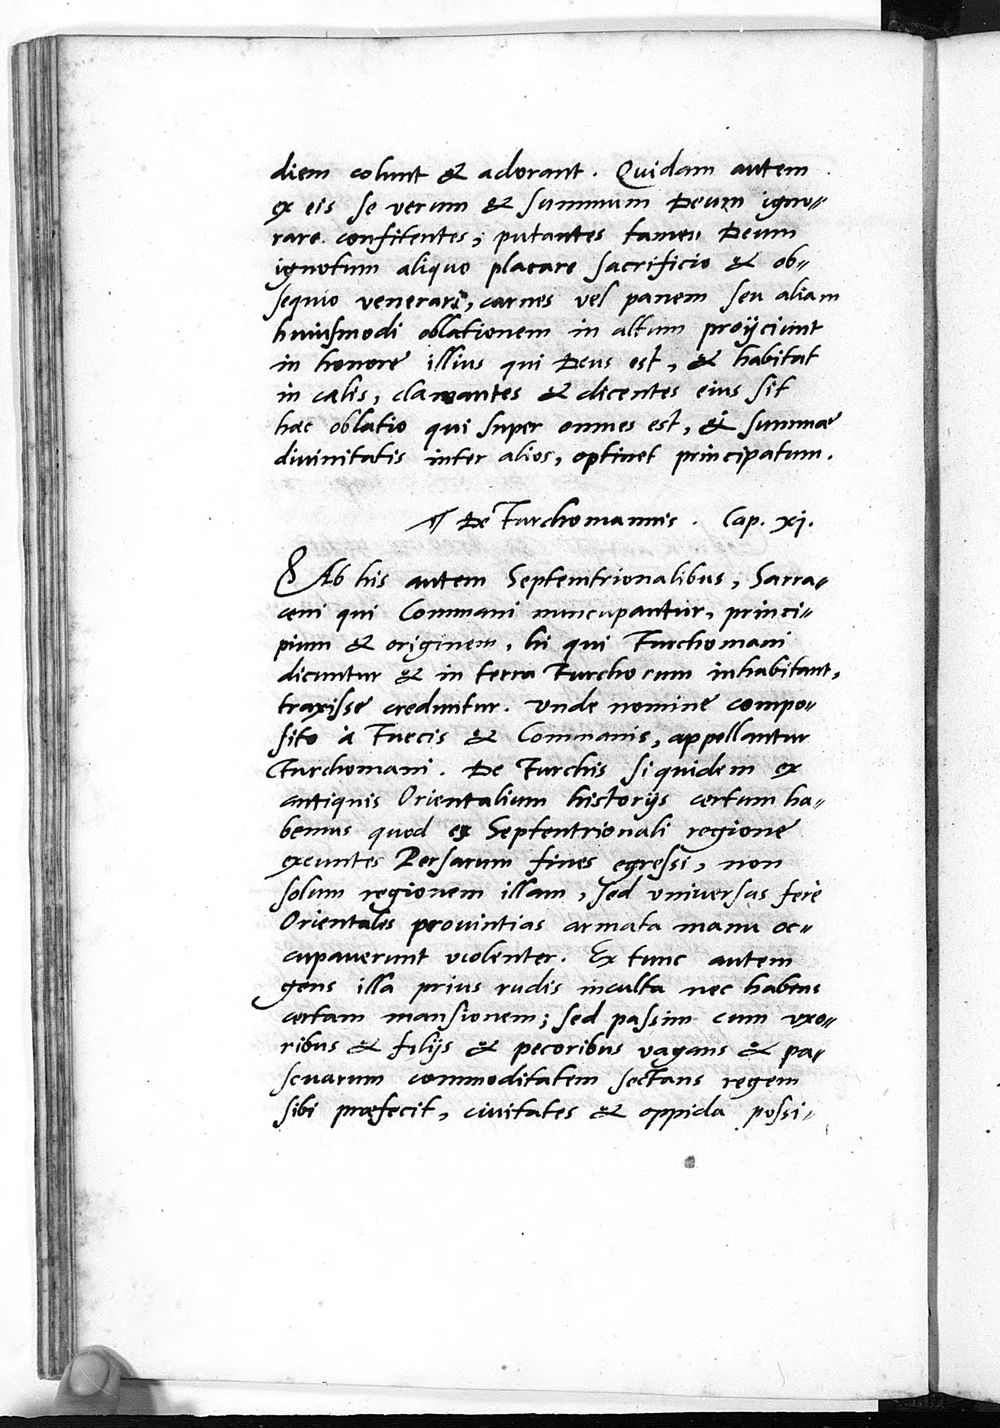 diem colunt & adorant. Quidam autem
ex eis se verum & summum Deum igno-
rare confitentes; putantes tamen Deum
ignotum aliquo placare sacrificio & ob-
sequio venerari, carnes vel panem seu aliam
huiusmodi oblationem in altum proijciunt
in honore illius qui Deus est, & habitat
in cælis, clamantes & dicentes eius sit
hac oblatio qui super omnes est, & summæ
diuinitatis inter alios, optinet principatum.
¶ De Turchomannis. Cap. xj.
Ab his autem Septemtrionalibus, Sarra-
ceni qui Commani nuncupantur, princi-
pium & originem, hi qui Turchomani
dicuntur & in terra Turchorum inhabitant,
traxisse creduntur. Vnde nomine compo-
sito à Tuecis & Commanis, appellantur
Turchomani. De Turchis siquidem ex
antiquis Orientalium historijs certum ha-
bemus quod ex Septentrionali regione
exeuntes Persarum fines egressi, non
solum regionem illam, sed vniuersas ferè
Orientales prouintias armata manu oc-
cupauerunt violenter. Ex tunc autem
gens illa prius rudis inculta nec habens
certam mansionem; sed passim cum vxo-
ribus & filijs & pecoribus vagans & pa-
scuarum commoditatem sectans regem
sibi præfecit, ciuitates & oppida possi-